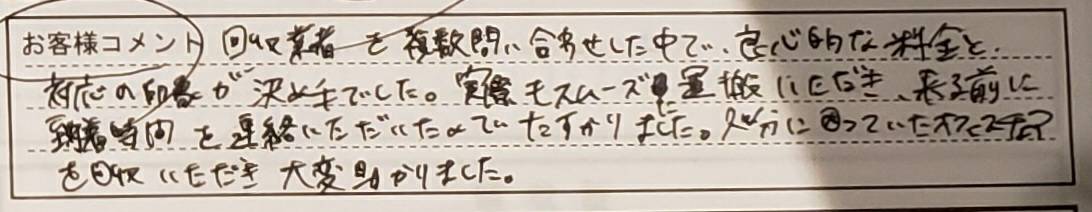 お客様コメント 回収業者を複数問い合わせした中で、良心的な料金と、
対応の印象が決め手でした。実際もスムーズに運搬いただき、来る前に
到着時間を連絡いただいたのでたすかりました。処分に困っていたオフィスチェア
を回収いただき大変助かりました。